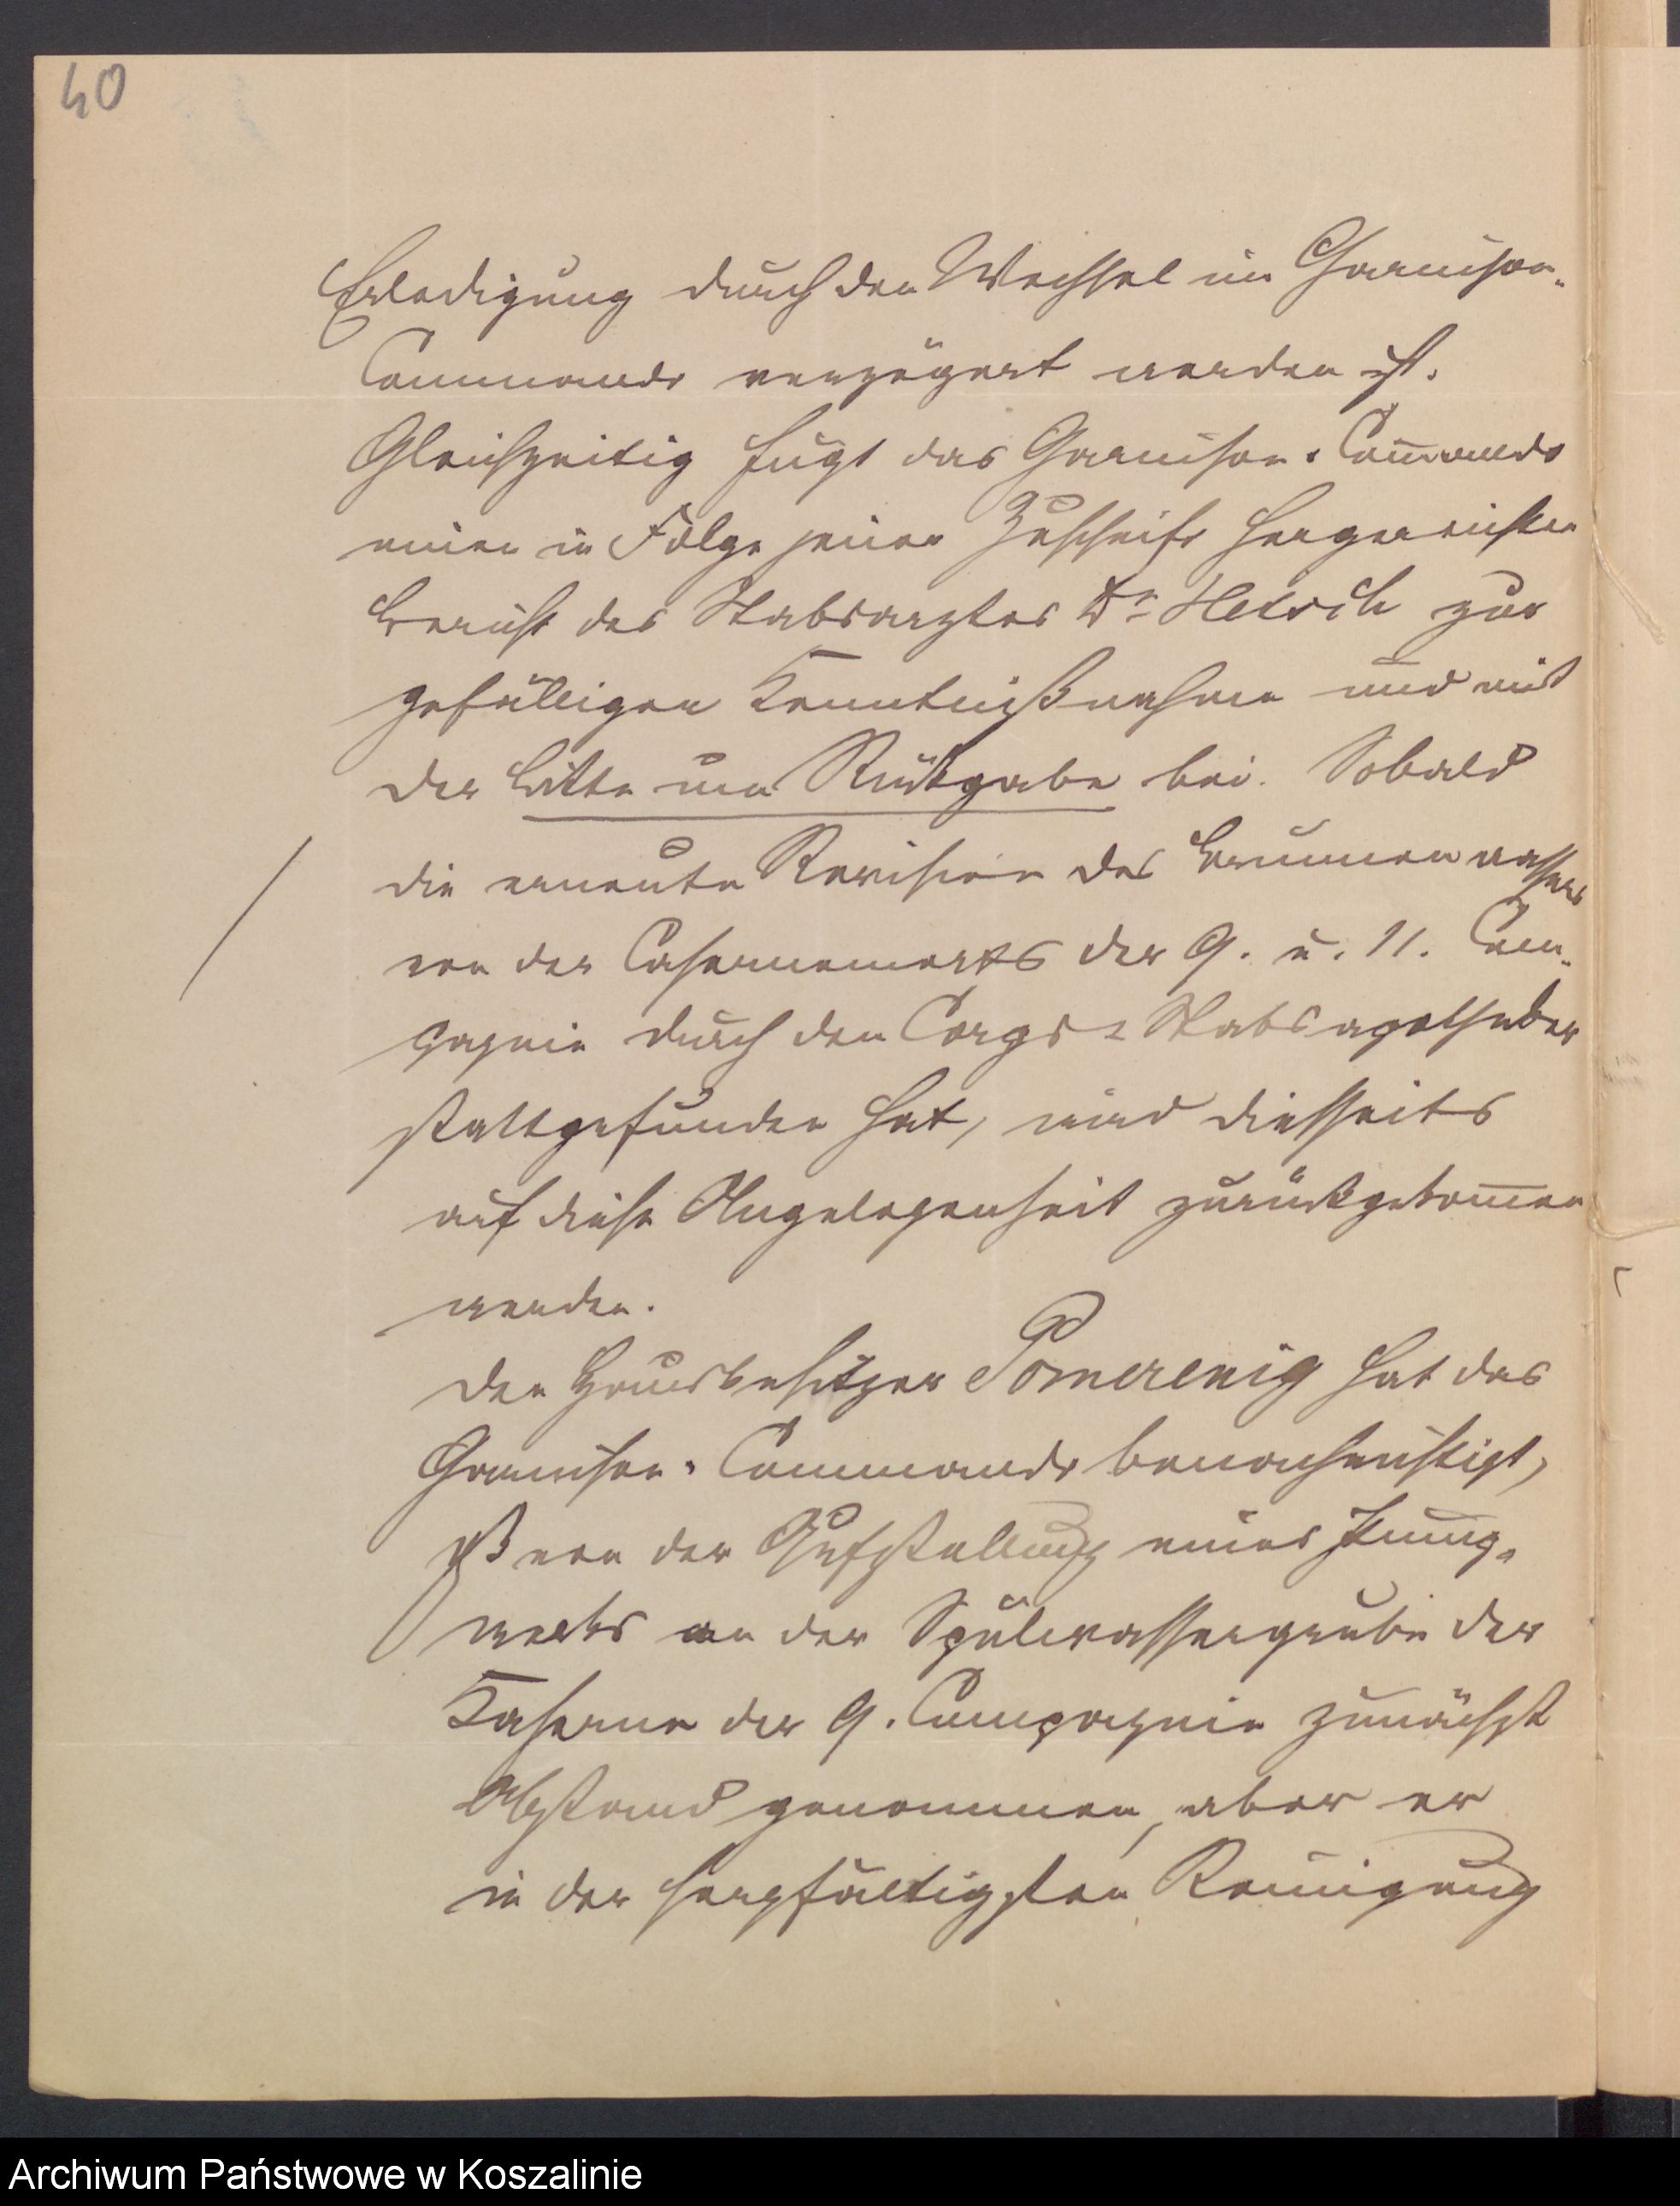 40
Erledigung durch den Wechsel im Garnison-
Commando verzögert worden ist.
Gleichzeitig fügt das Garnison-Commando
einen in Folge jener Zuschrift hergereichten
Bericht des Stabsarztes Dr. zur
gefälligen Kenntnißnahme und mit
der Bitte um Rückgabe bei. Sobald
die erneute Revision des Brunnenwassers
von der der 9. u. 11. Com-
pagnie durch den Corps-Stabsapotheker
stattgefunden hat, wird diesseits
auf diese Angelegenheit zurückgekommen
werden.
Den Hausbesitzer Pomerenig hat das
Garnison-Commando benachrichtigt,
daß von der Aufstellung eines
werks an der Spülwassergrube der
Kaserne der 9. Compagnie zunächst
Abstand genommen, aber er
in der sorgfältigsten Reinigung
Archiwum Państwowe w Koszalinie